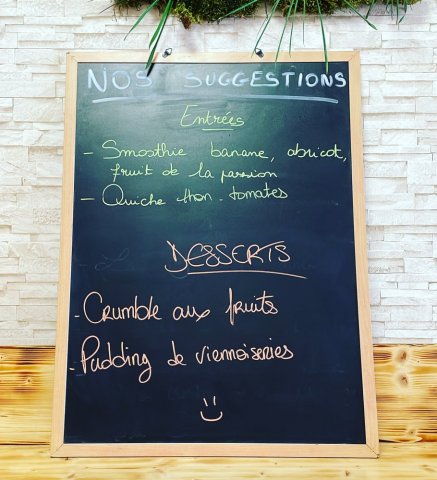 NOS SUGGESTIONS
Entrées
- Smoothie banane, abricot,
fruit de la passion
- Quiche thon-tomates
DESSERTS
- Crumble aux fruits
- Pudding de viennoiseries